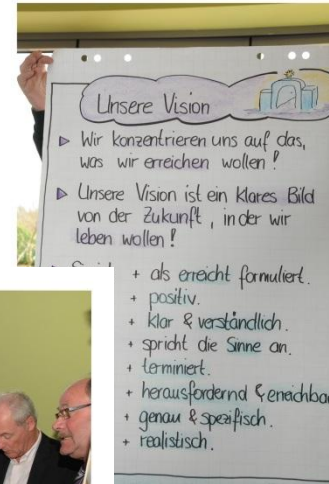 Unsere Vision
▷ Wir konzentrieren uns auf das,
was wir erreichen wollen!
▷ Unsere Vision ist ein klares Bild
von der Zukunft, in der wir
leben wollen!
+ als erreicht formuliert.
+ positiv.
+ klar & verständlich.
+ spricht die Sinne an.
+ terminiert.
+ herausfordernd & erreichbar
+ genau & spezifisch.
+ realistisch.